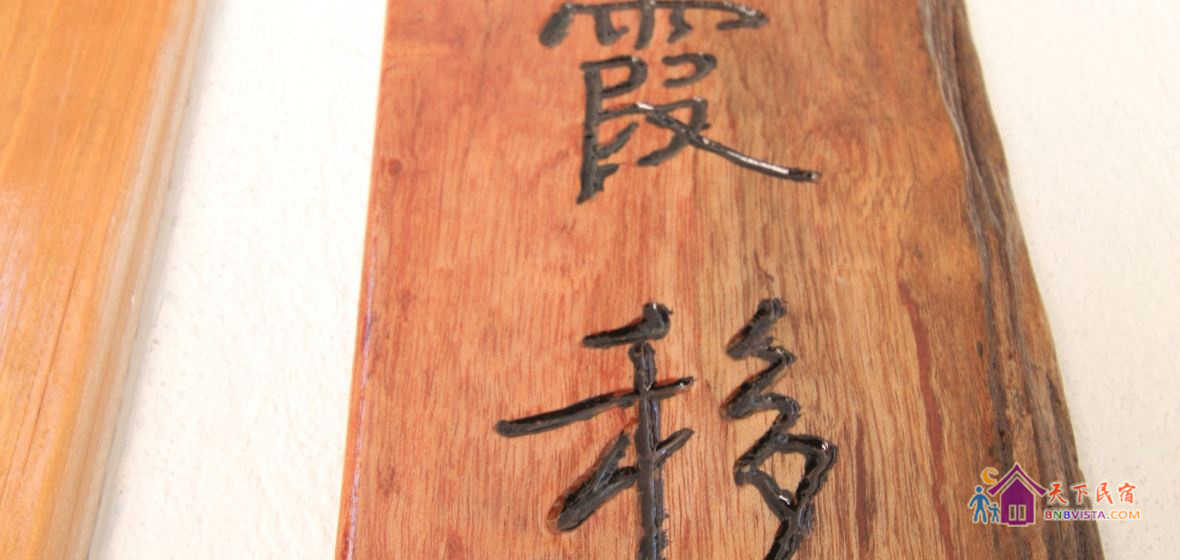 霞
移
天下民宿
BNBVISTA.COM